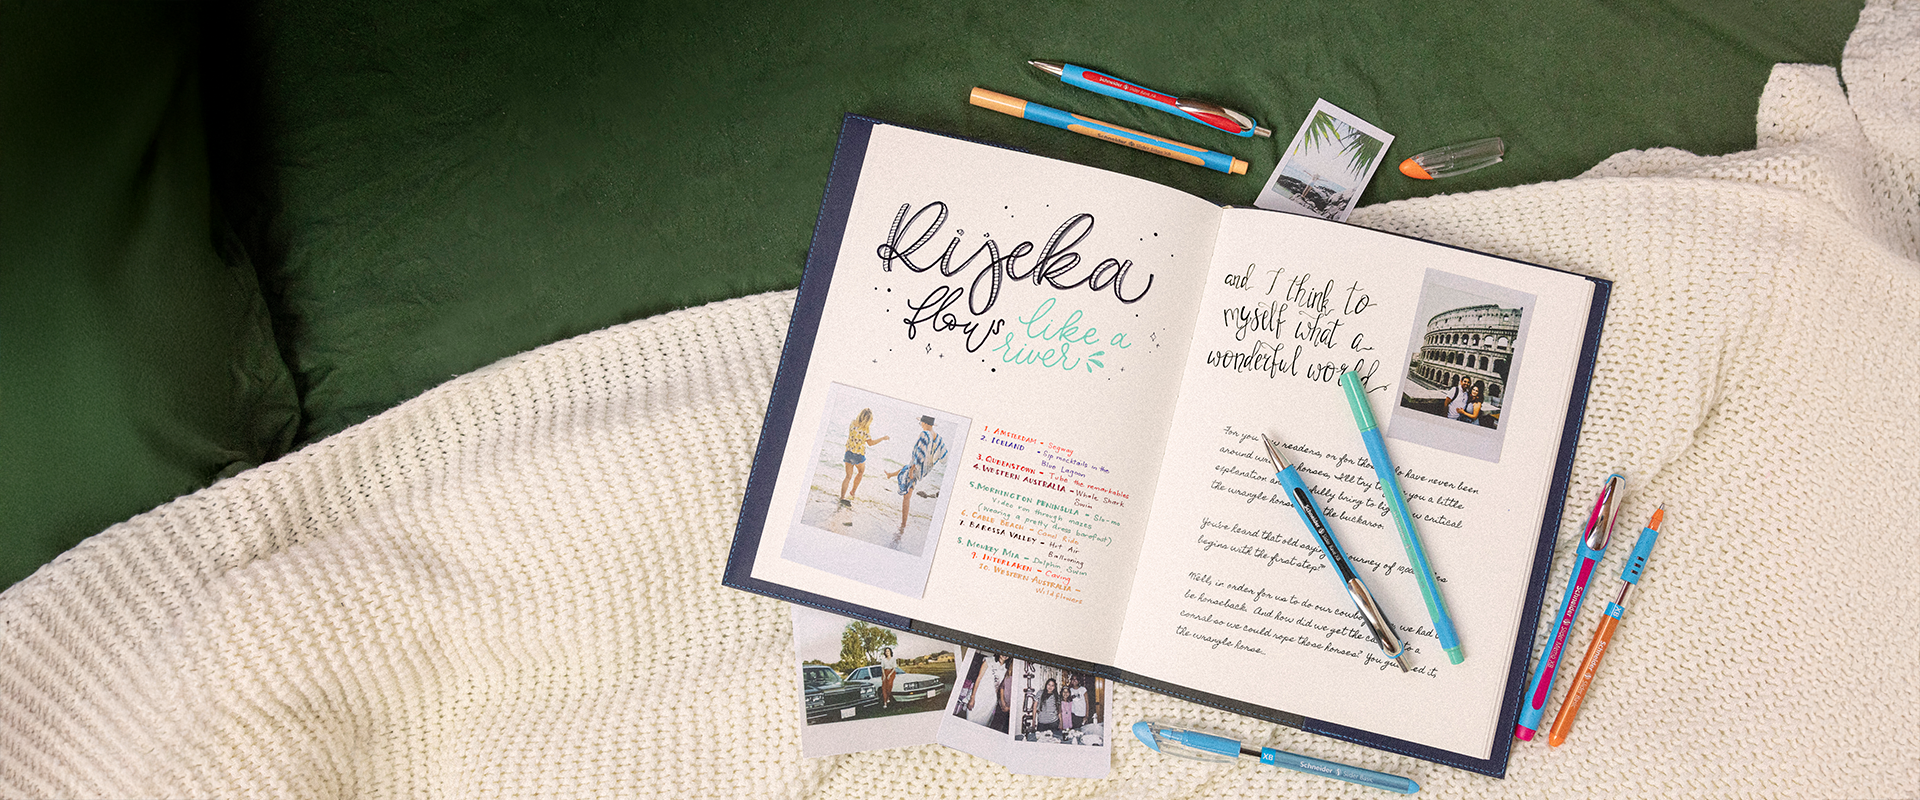 Rijeka
flows like a
river
1. AMSTERDAM - Segway
2. ICELAND - Sip mocktails in the
Blue Lagoon
3. QUEENSTOWN - Tube the remarkables
4. WESTERN AUSTRALIA - Whale Shark
Swim
5. MORNINGTON PENINSULA - Slo-mo
Video run through mazes
(wearing a pretty dress barefoot)
6. CABLE BEACH - Camel Ride
7. BAROSSA VALLEY - Hot Air
Ballooning
8. MONKEY MIA - Dolphin Swim
9. INTERLAKEN - Caving
10. WESTERN AUSTRALIA -
Wildflowers
and I think to
myself what a
wonderful world
For you readers, or for those have never been
around horses, I'll try to you a little
explanation and fully bring to critical
the wrangle the buckaroo.
You've heard that old saying journey of
begins with the first step?"
Well, in order for us to do our we had
be horseback. And how did we get the to a
corral so we could rope those horses? You it,
the wrangle horse...
Schneider Slider Rave XB
Schneider Slider Edge XB
Schneider Slider Rave XB
Schneider Slider Memo XB
XB Schneider Slider Basic
XB Schneider Slider Basic